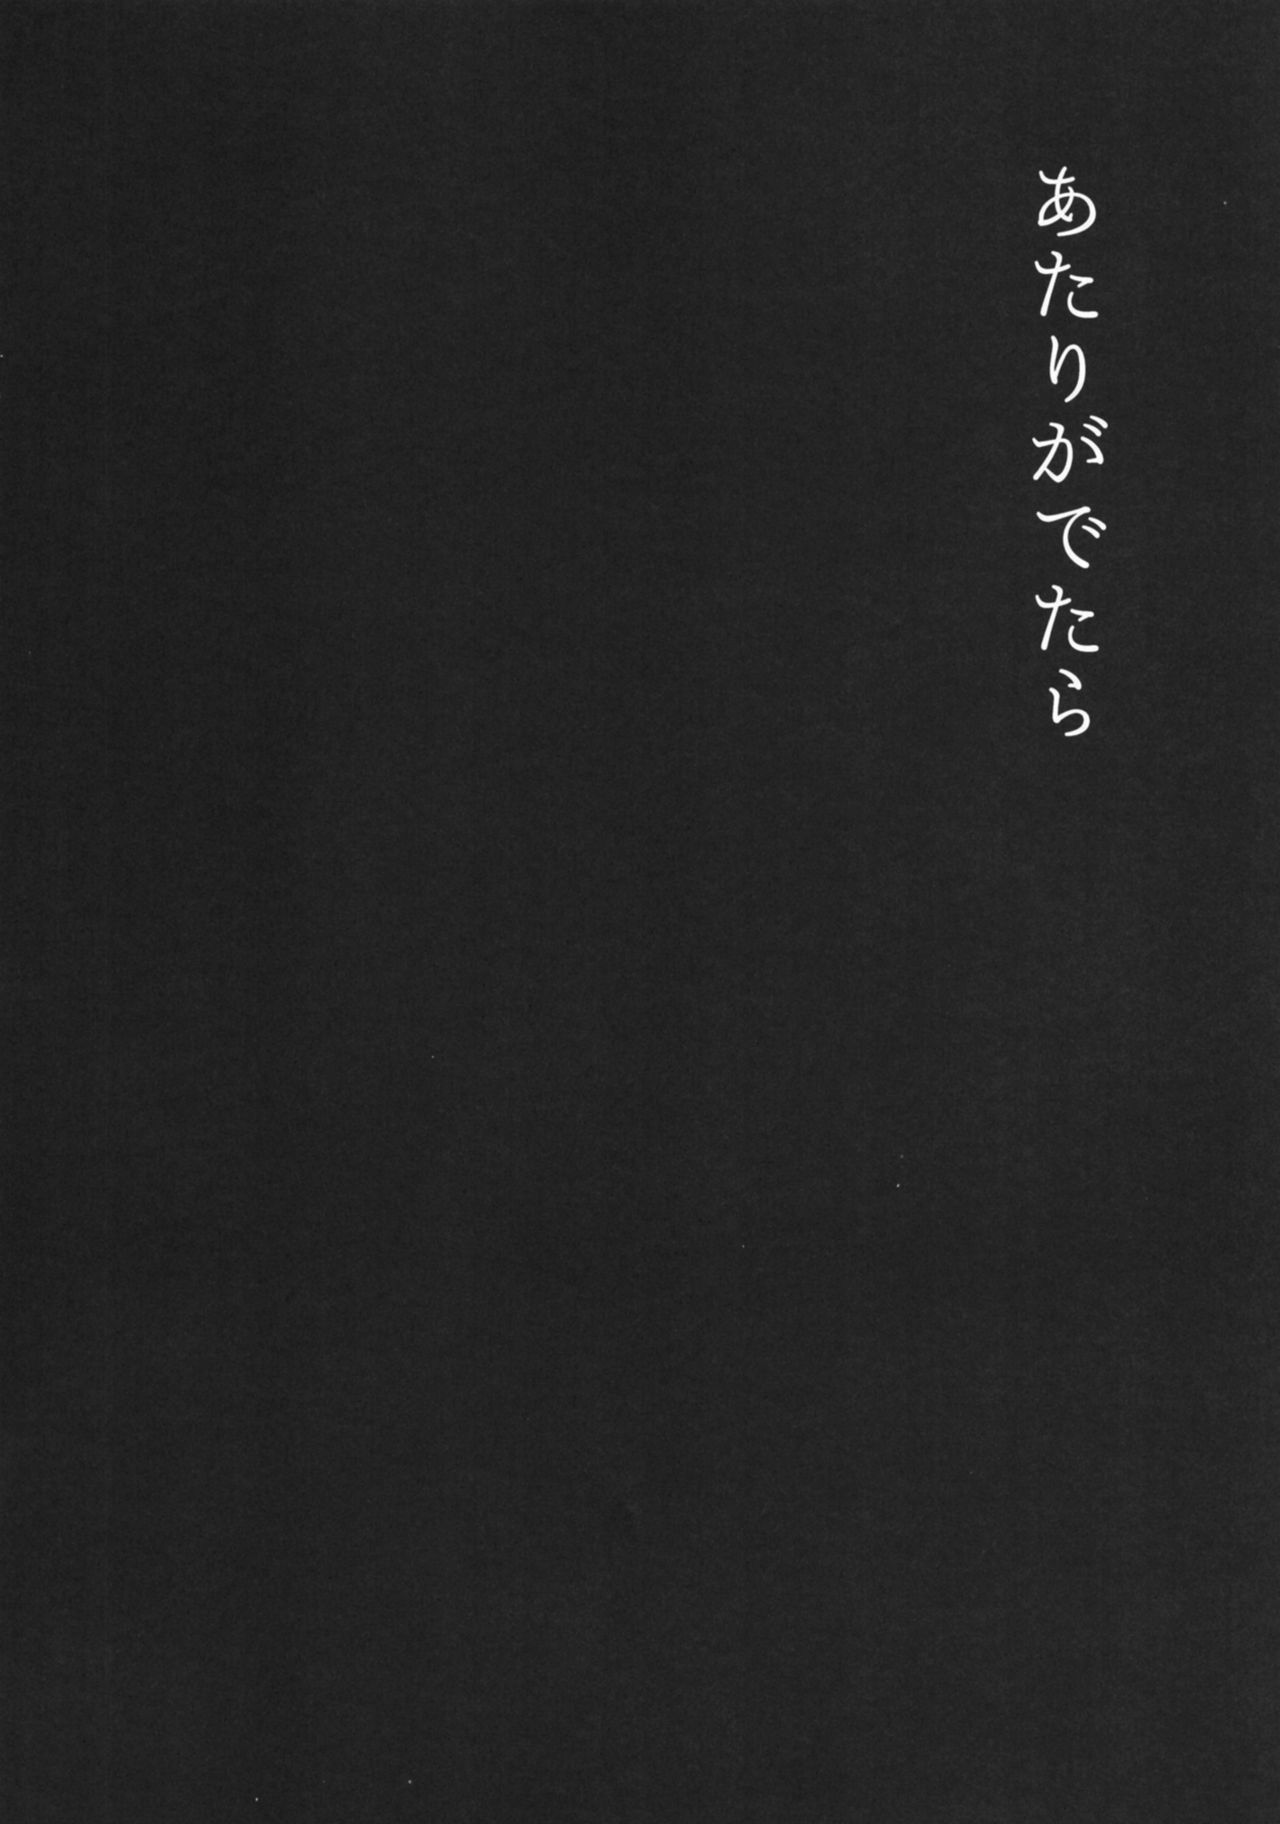 あたりがでたら